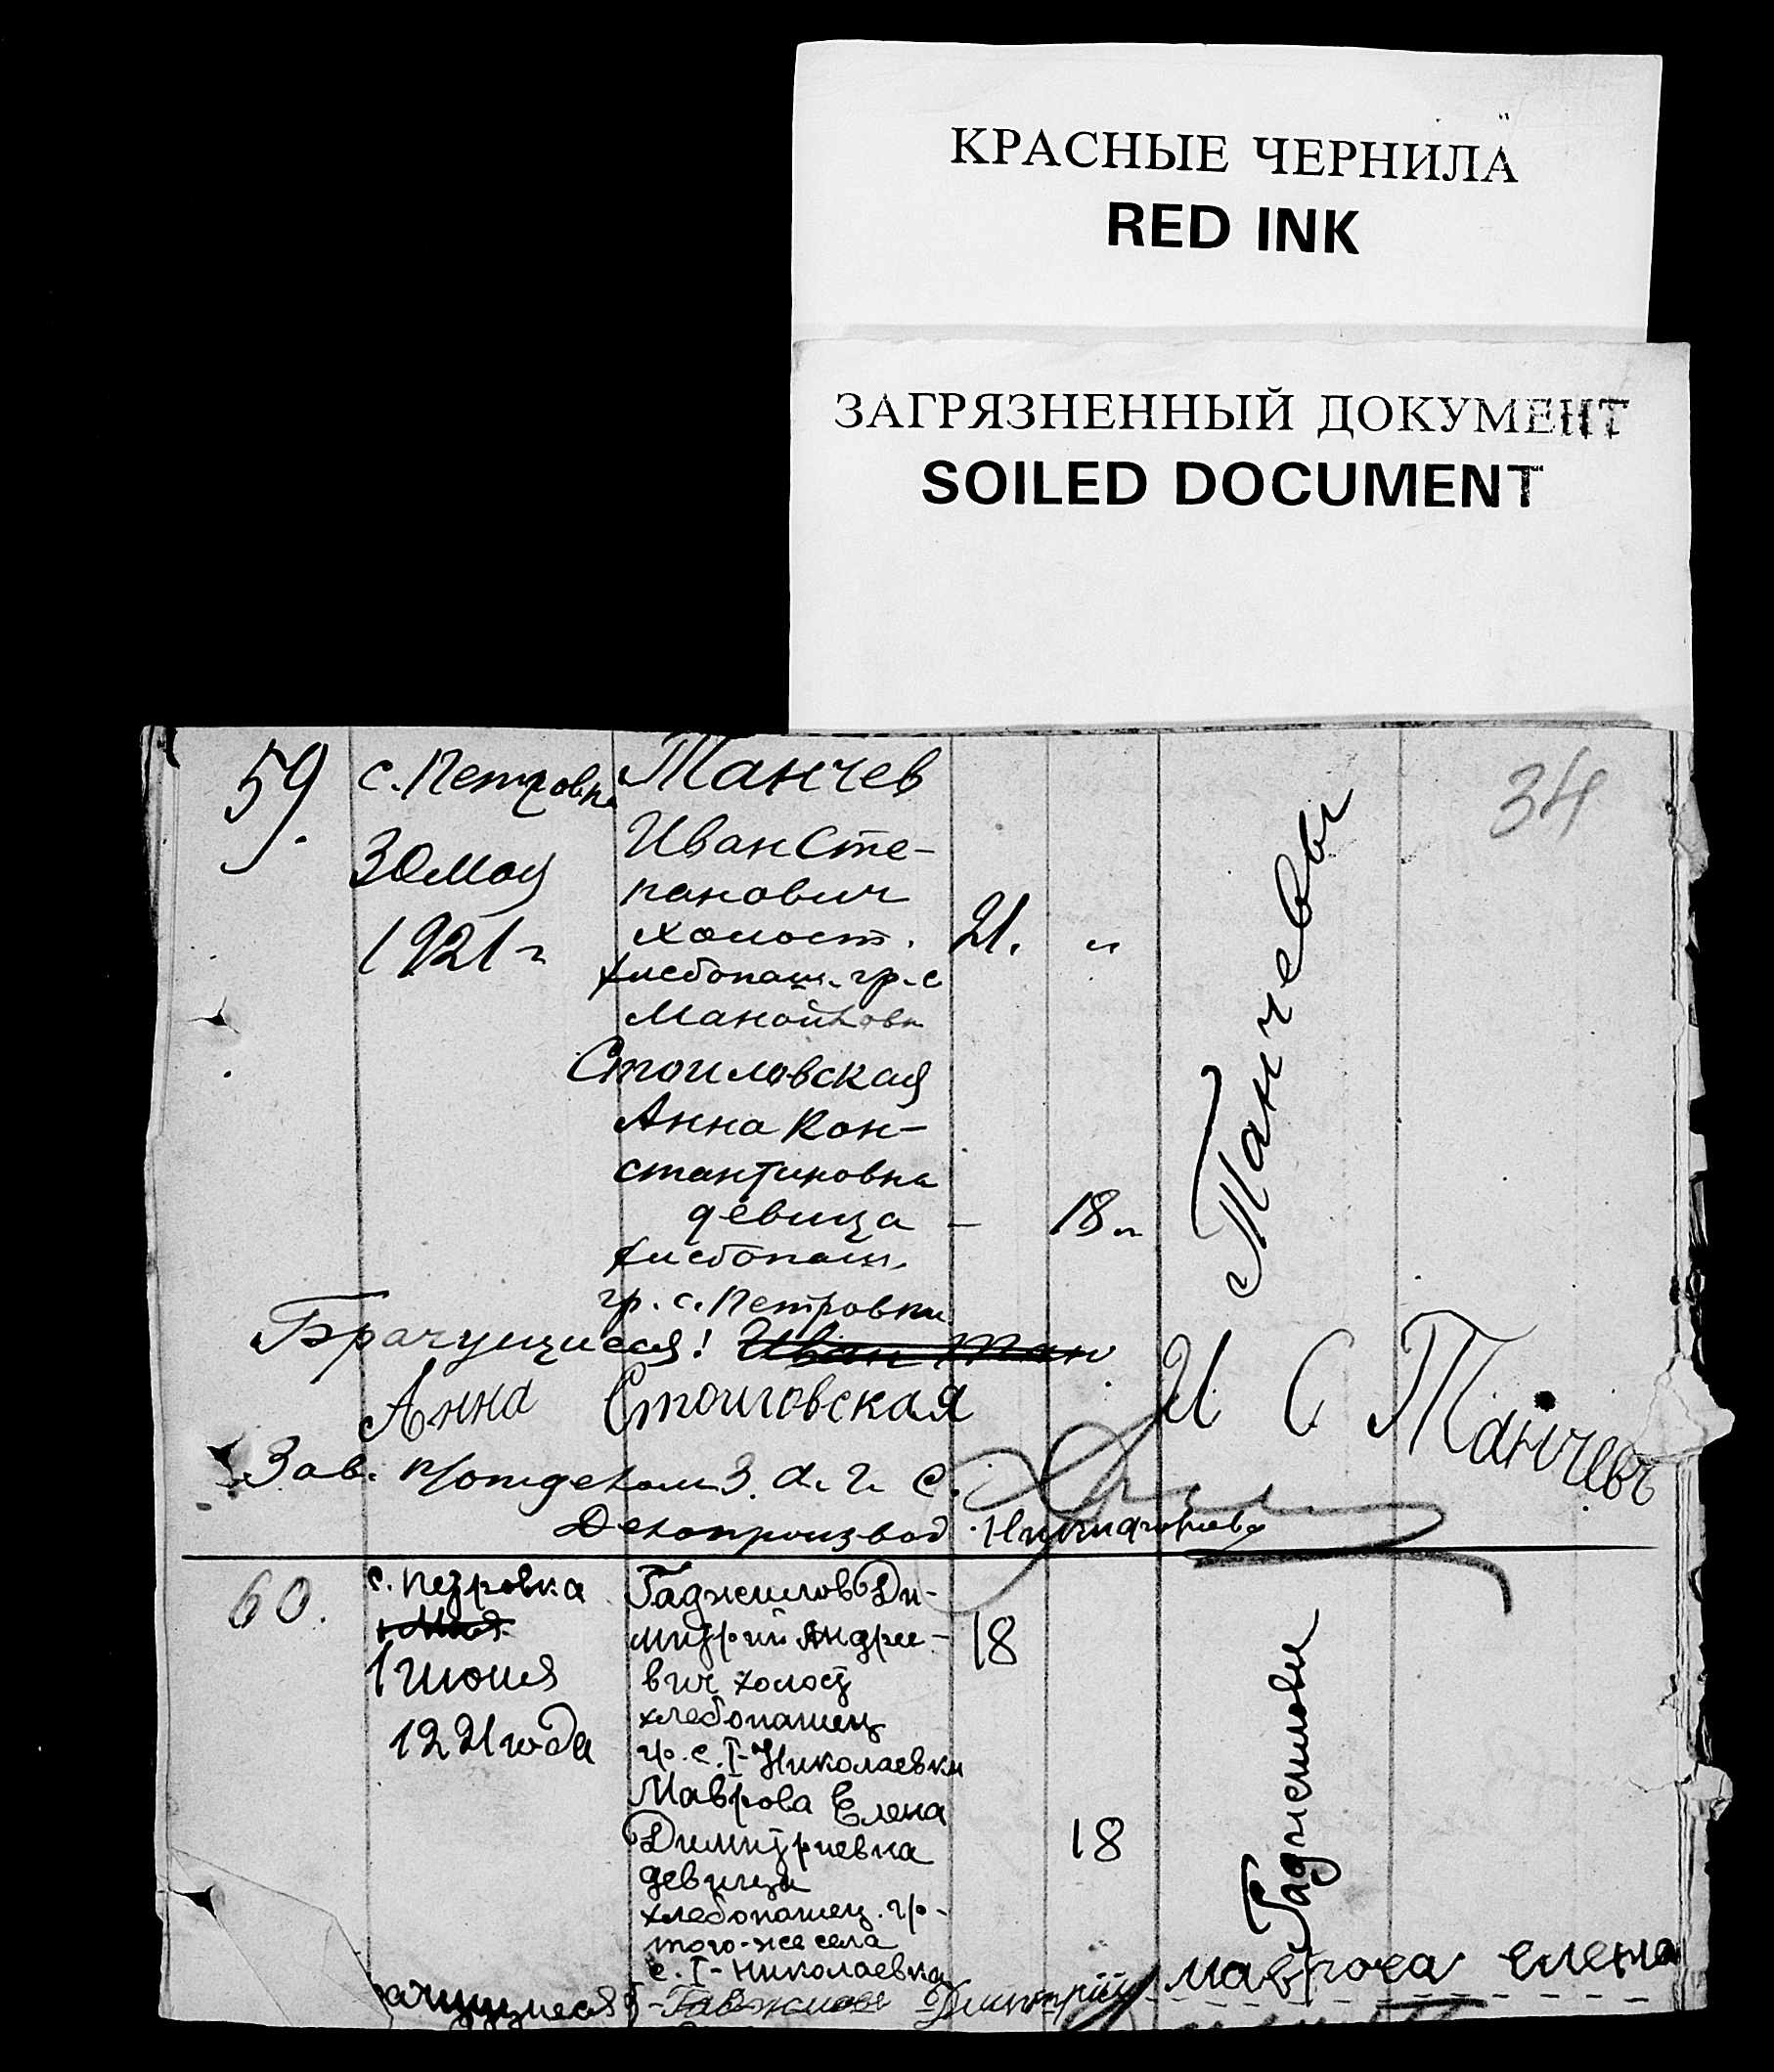 КРАСНЫЕ ЧЕРНИЛА
RED INK
ЗАГРЯЗНЕННЫЙ ДОКУМЕНТ
SOILED DOCUMENT
34
59.
с. Петровка
30 мая
1921 г
Танчев
Иван Сте-
панович
холост.
хлебопаш. гр. с
Манойловки
21. "
Стоиловская
Анна Кон-
стантиновна
девица
хлебопаш.
гр. с. Петровки
- 18 "
Танчевы
Брачущиеся! Иван Тан
Анна Стоиловская И С Танчевъ
Зав. п/отделом З. А. Г. С.
Делопроизвод.
60.
с. Петровка
1 июня
1221 года
Гаджилов Ди-
митрий Андрее-
вич холост
хлебопашец
гр. с. I-Николаевки
18
Маврова Елена
Димитриевна
девица
хлебопашец. гр-
того-же села
с. I-Николаевка
18
Гаджиловы
Димитрий Маврова елена